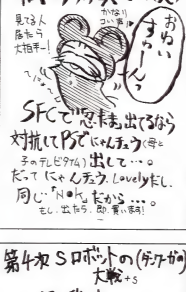 見てる人
居たら
大拍手ー!
かなり
コい事
おねい
すわーんっ
SFCで"忍たま"出てるなら
対抗してPSでにゃんチュウ(母と
子のテレビタイム)出して…。
だってにゃんチュウ、Lovelyだし、
同じ、NHK、だから…。
もし、出たら、即、買います!
第4次Sロボットの
大戦+S